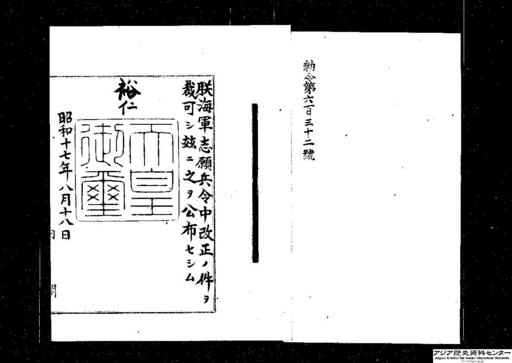 勅令第六百三十二號
朕海軍志願兵令中改正ノ件ヲ
裁可シ茲ニ之ヲ公布セシム
裕仁
天皇
御璽
昭和十七年八月十八日
アジア歴史資料センター
Japan Center for Asian Historical Records